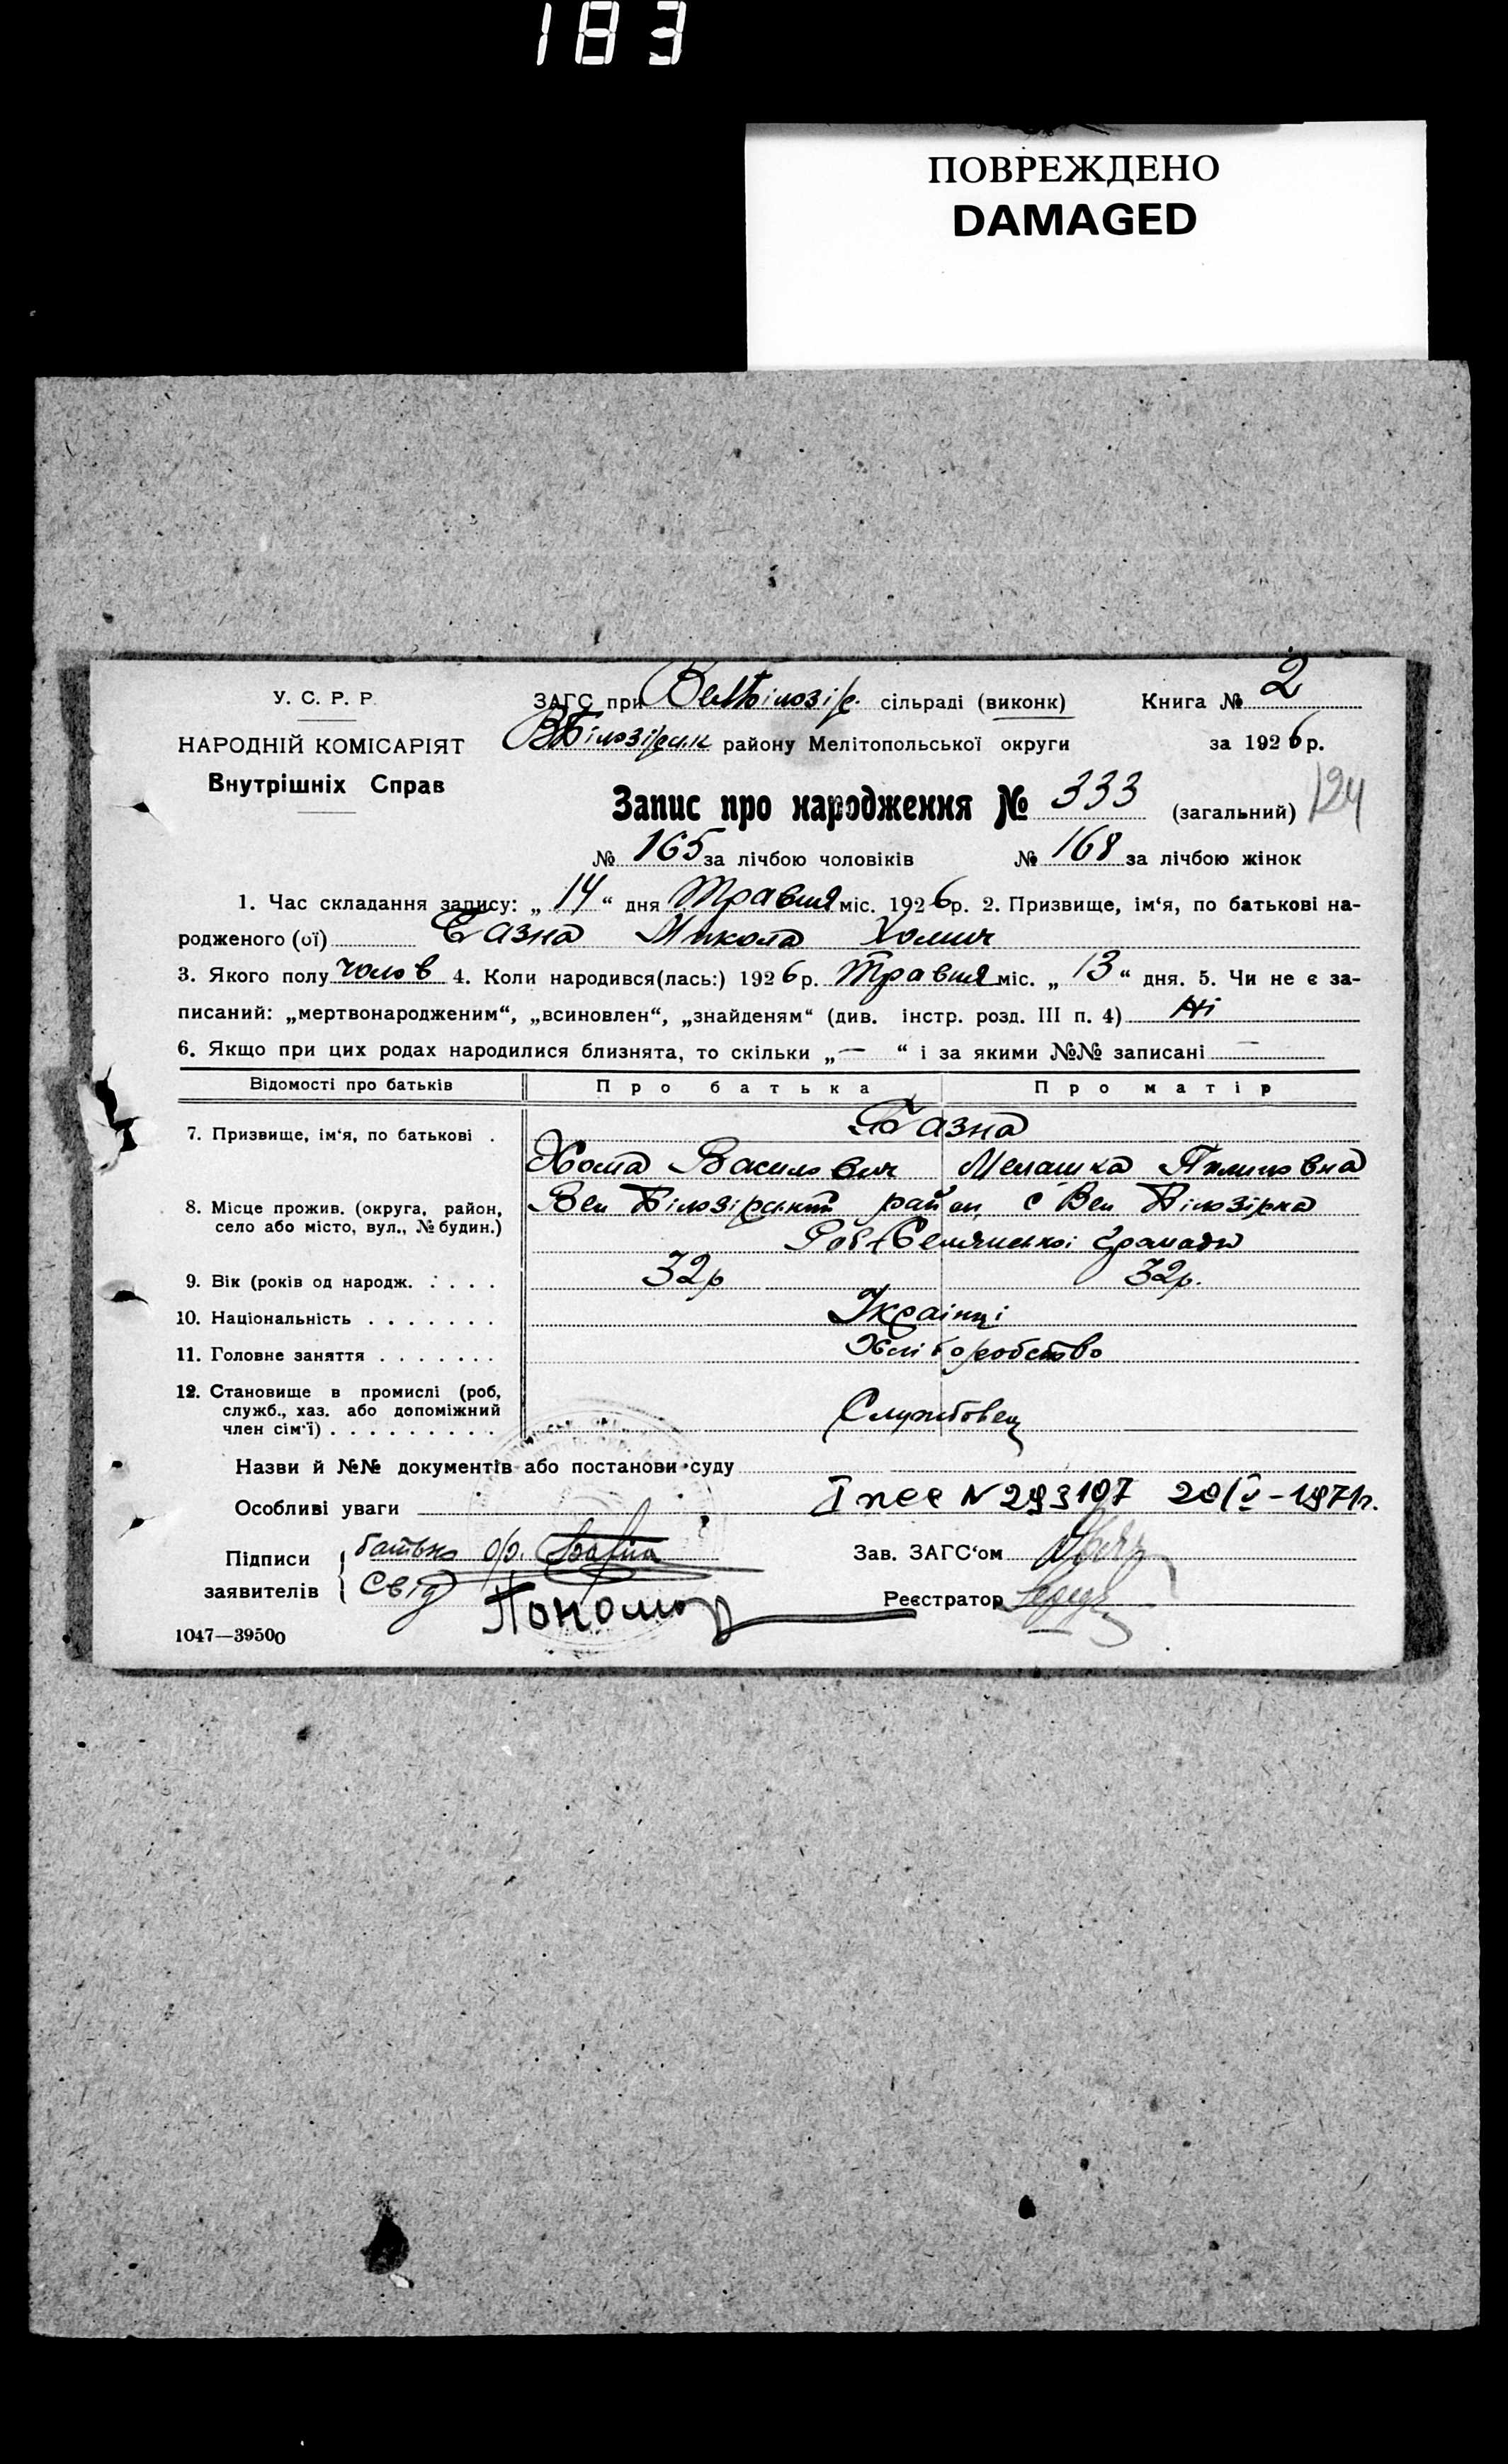 183
ПОВРЕЖДЕНО
DAMAGED
У. С. Р. Р.
НАРОДНІЙ КОМІСАРІЯТ
Внутрішніх Справ
ЗАГС при ВелБілозір. сільраді (виконк)
Книга № 2
ВБілозірськ району Мелітопольської округи
за 1926 р.
Запис про народження № 333 (загальний) 124
№ 165 за лічбою чоловіків № 168 за лічбою жінок
1. Час складання запису: „ 14 “ дня Травня міс. 1926 р. 2. Призвище, ім‘я, по батькові на-
родженого (ої) Базна Микола Хомич
3. Якого полу чолов 4. Коли народився(лась:) 1926 р. Травня міс. „ 13 “ дня. 5. Чи не є за-
писаний: „мертвонародженим“, „всиновлен“, „знайденям“ (див. інстр. розд. III п. 4) Ні
6. Якщо при цих родах народилися близнята, то скільки „— “ і за якими №№ записані —
Відомості про батьків Про батька Про матір
7. Призвище, ім‘я, по батькові . Базна
Хома Васильович Мелашка Пилиповна
8. Місце прожив. (округа, район, Вел Білозірський район с Вел Білозірка
село або місто, вул., № будин.)
Роб Селянської Громади
9. Вік (років од народж. . . . . 32р 32р.
10. Національність . . . . . . . Українці
11. Головне заняття . . . . . . . Хліборобство
12. Становище в промислі (роб,
служб., хаз. або допоміжний Службовец
член сім‘ї) . . . . . . . . .
Назви й №№ документів або постанови суду
Особливі уваги N 293107 20/V-1971р.
Підписи батько
заявителів Свід Пономар
Зав. ЗАГС‘ом
Реєстратор
1047—39500